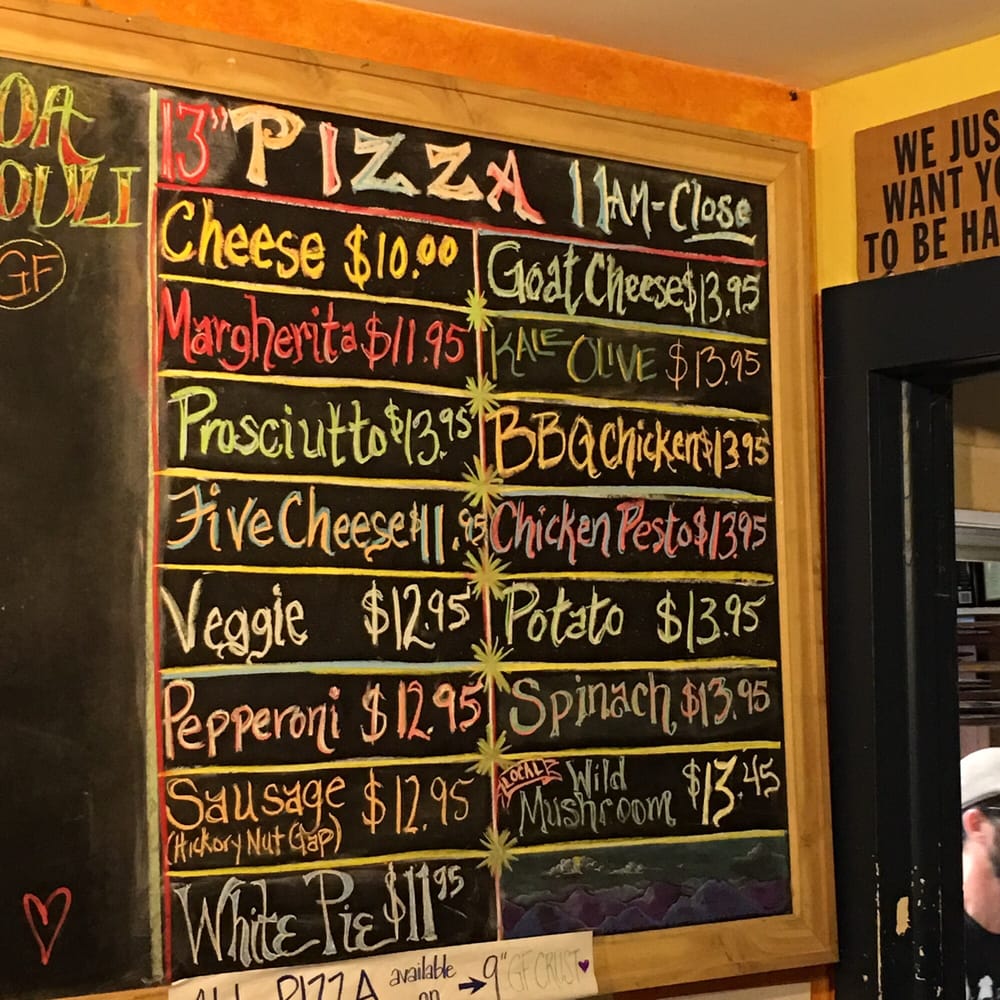 OA
OULI
GF
13" PIZZA 11AM-Close
Cheese $10.00
Margherita $11.95
Prosciutto $13.95
Five Cheese $11.95
Veggie $12.95
Pepperoni $12.95
Sausage $12.95
(Hickory Nut Gap)
White Pie $11.95
Goat Cheese $13.95
KALE OLIVE $13.95
BBQ Chicken $13.95
Chicken Pesto $13.95
Potato $13.95
Spinach $13.95
LOCAL Wild
Mushroom $13.45
ALL PIZZA available
on → 9" GF CRUST
WE JUS
WANT YO
TO BE HA